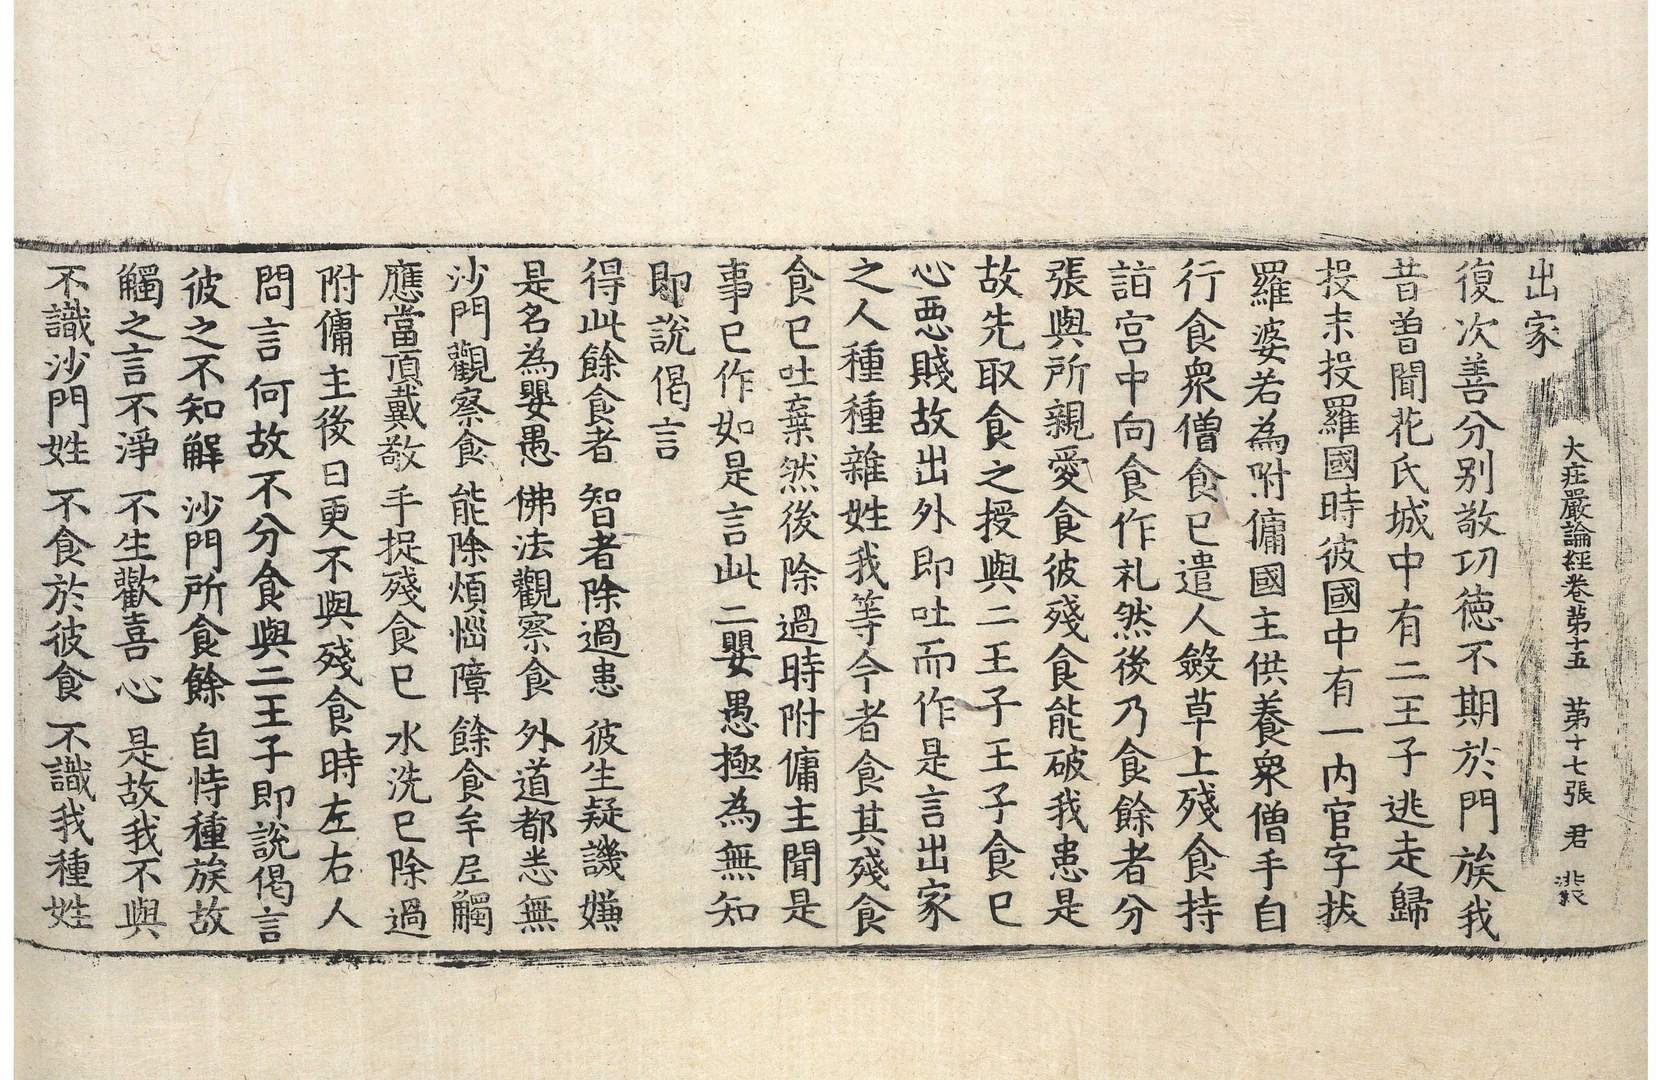 大莊嚴論經卷第十五　第十七張　君
出家
復次善分別敬功徳不期於門族我
昔曽聞花氏城中有二王子逃走歸
投末投羅國時彼國中有一内官字拔
羅婆若為附傭國主供養衆僧手自
行食衆僧食已遣人斂草上殘食持
詣宮中向食作礼然後乃食餘者分
張與所親愛食彼殘食能破我患是
故先取食之授與二王子王子食已
心悪賤故出外即吐而作是言出家
之人種種雜姓我等今者食其殘食
食已吐棄然後除過時附傭主聞是
事已作如是言此二嬰愚極為無知
即說偈言
得此餘食者　智者除過患　彼生疑譏嫌
是名為嬰愚　佛法觀察食　外道都悉無
沙門觀察食　能除煩惱障　餘食牟尼觸
應當頂戴敬　手捉殘食已　水洗已除過
附傭主後日更不與殘食時左右人
問言何故不分食與二王子即說偈言
彼之不知解　沙門所食餘　自恃種族故
觸之言不淨　不生歡喜心　是故我不與
不識沙門姓　不食於彼食　不識我種姓